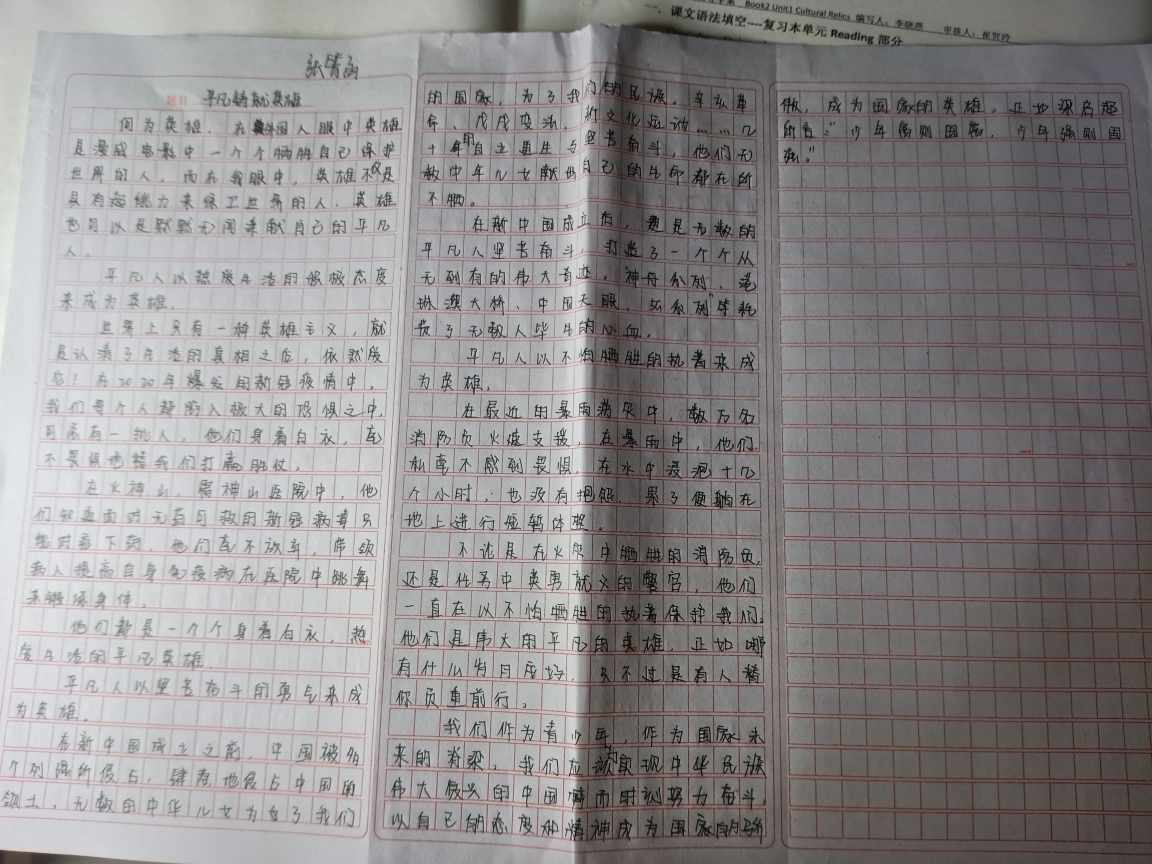 Book2 Unit1 Cultural Relics 编写人：李晓燕 审核人：崔贺玲
一、课文语法填空----复习本单元 Reading 部分
题目 平凡铸就英雄
何为英雄，在美国人眼中英雄
是漫威电影中一个个牺牲自己保护
世界的人，而在我眼中，英雄不仅是
具有超能力来保卫世界的人，英雄
也可以是默默无闻奉献自己的平凡
人。
平凡人以热爱生活的积极态度
来成为英雄。
世界上只有一种英雄主义，就
是认清了生活的真相之后，依然爱
它！在2020年爆发的新冠疫情中，
我们每个人都陷入极大的恐惧之中，
可总有一批人，他们身着白衣，毫
不畏惧也替我们打赢胜仗。
在火神山，雷神山医院中，他
们每日面对无药可救的新冠病毒只
他们毫不放弃，带领
病人提高自身免疫病在医院中跳舞
来锻炼身体。
他们都是一个个身着白衣，热
爱生活的平凡英雄。
平凡人以坚苦奋斗的勇气来成
为英雄。
在新中国成立之前，中国被多
个列强所侵占，肆意地侵占中国的
领土，无数的中华儿女为了我们
的国家，为了我们的民族，辛亥革
命、戊戌变法，新文化运动……几
十年的自主更生与坚苦奋斗，他们无
数中年儿女献出自己的生命都在所
不牺。
在新中国成立后，更是无数的
平凡人坚苦奋斗，打造了一个个从
无到有的伟大奇迹，神舟系列、港
珠澳大桥、中国天眼、
费了无数人毕生的心血。
平凡人以不怕牺牲的执着来成
为英雄。
在最近的暴雨满灾中，数万名
消防员火速支援，在暴雨中，他们
丝毫不感到畏惧，在水中浸泡十几
个小时，也没有抱怨，累了便躺在
地上进行短暂休整。
不论是在火灾中牺牲的消防员，
还是任务中英勇就义的警官，他们
一直在以不怕牺牲的执着保护我们，
他们是伟大的平凡的英雄，正如哪
有什么岁月静好，只不过是有人替
你负重前行。
我们作为青少年，作为国家未
来的脊梁，我们应为实现中华民族
伟大复兴的中国梦而时刻努力奋斗，
以自己的态度和精神成为国家的骄
傲，成为国家的英雄，正如梁启超
所言：“少年强则国强，少年强则国
强。”